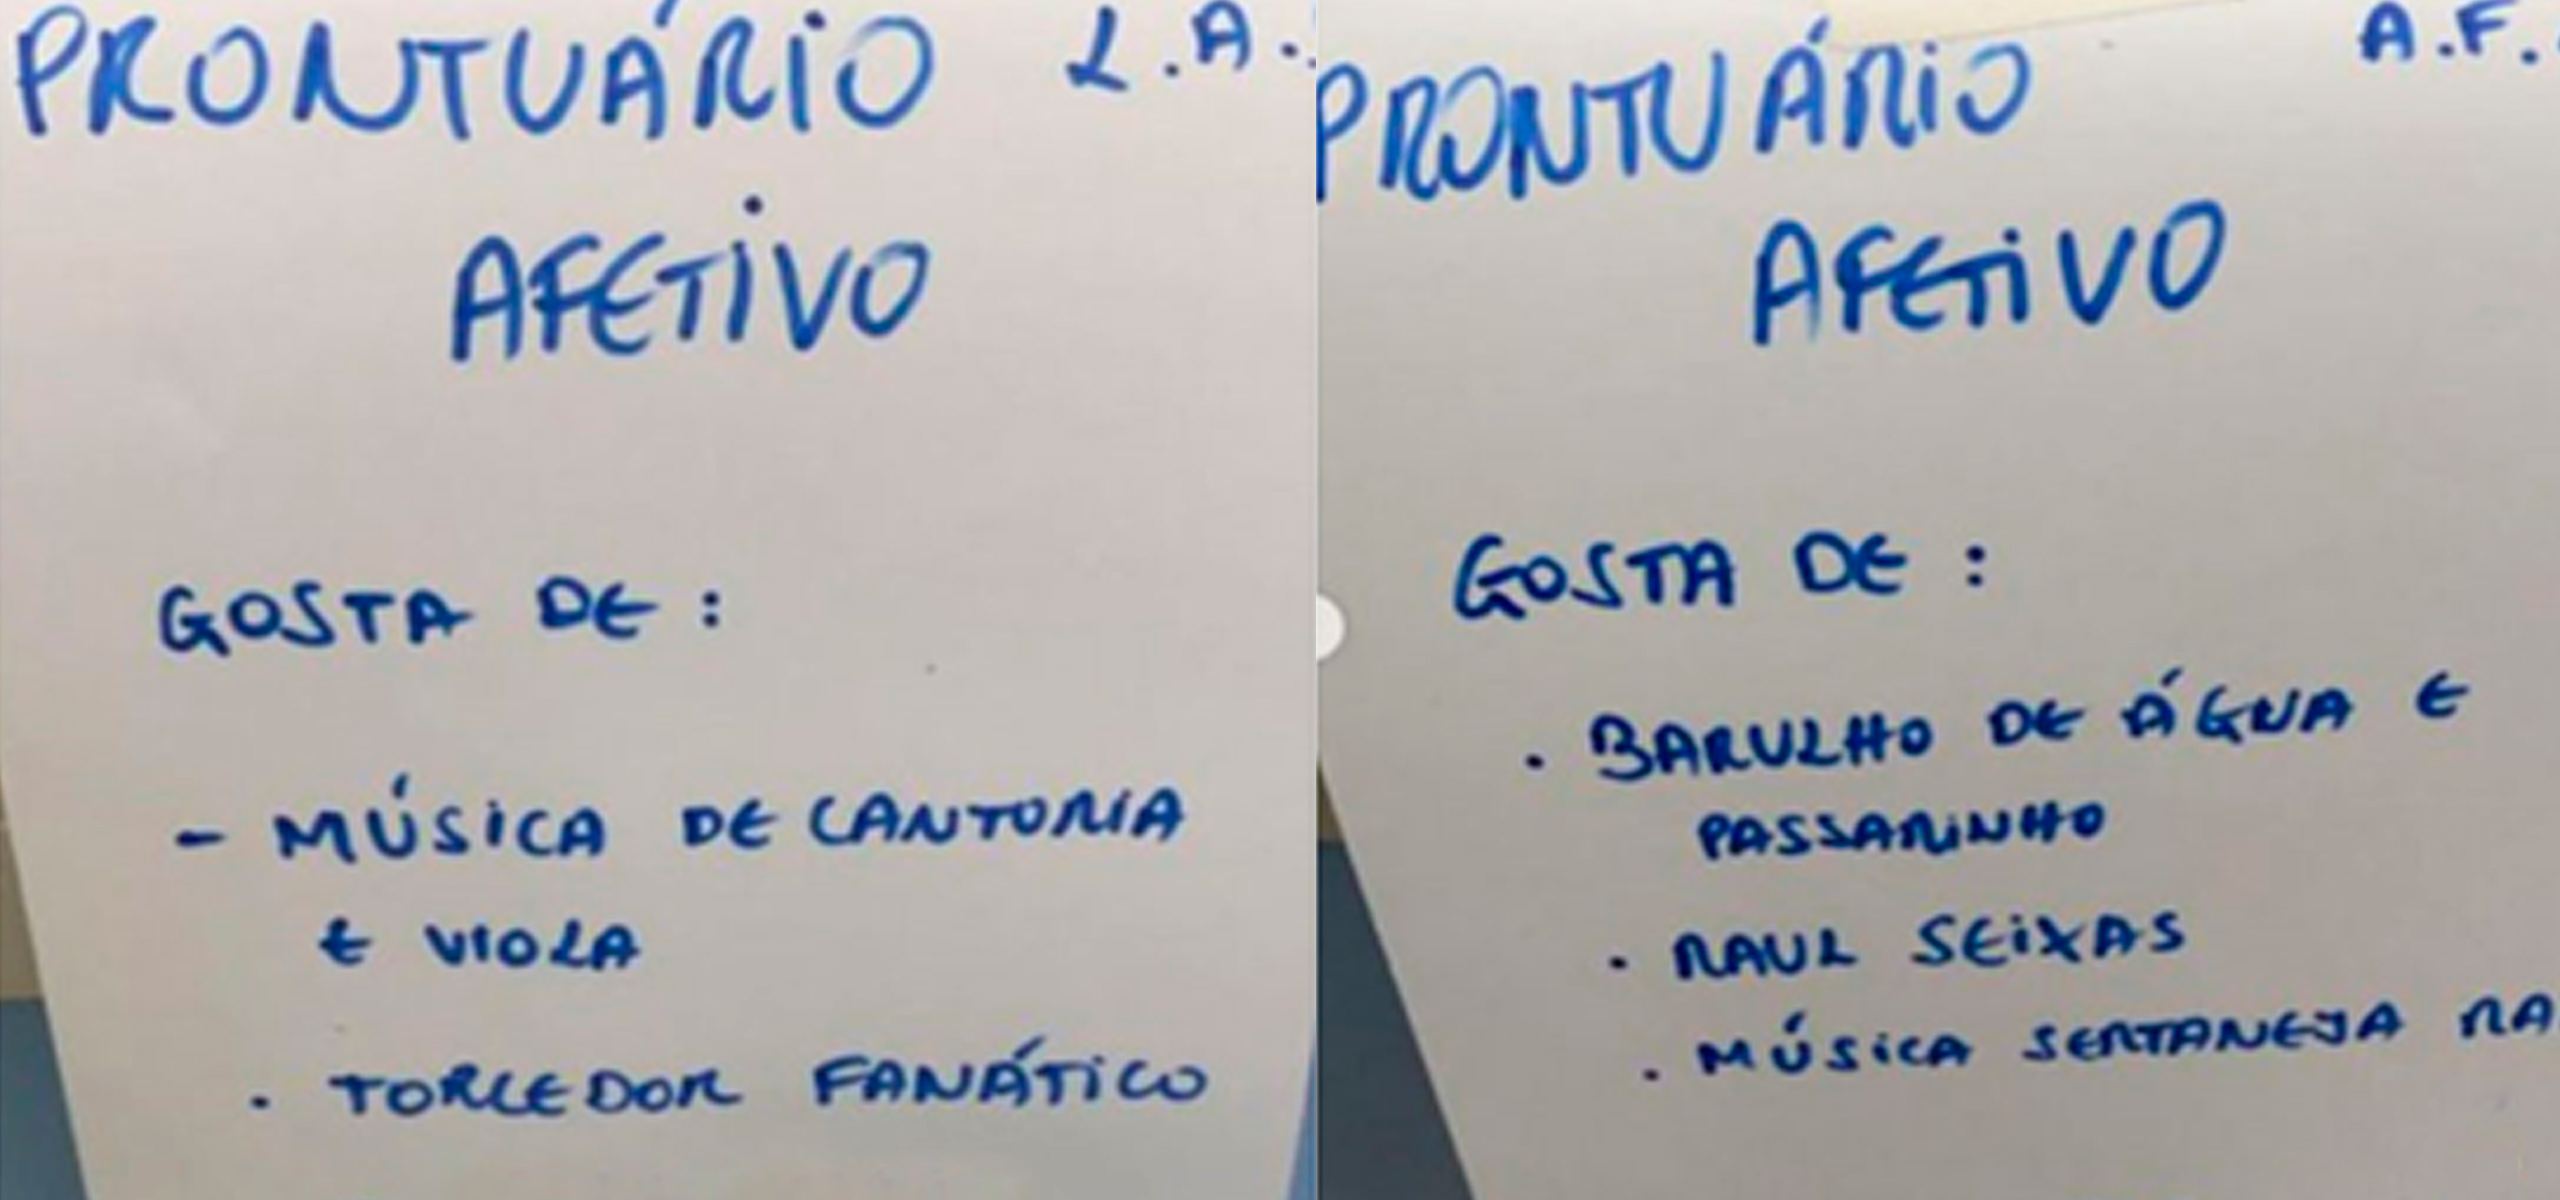 PRONTUÁRIO L.A.
AFETIVO
GOSTA DE:
- MÚSICA DE CANTORIA
E VIOLA
. TORCEDOR FANÁTICO
PRONTUÁRIO A.F.
AFETIVO
GOSTA DE:
. BARULHO DE ÁGUA E
PASSARINHO
. RAUL SEIXAS
. MÚSICA SERTANEJA